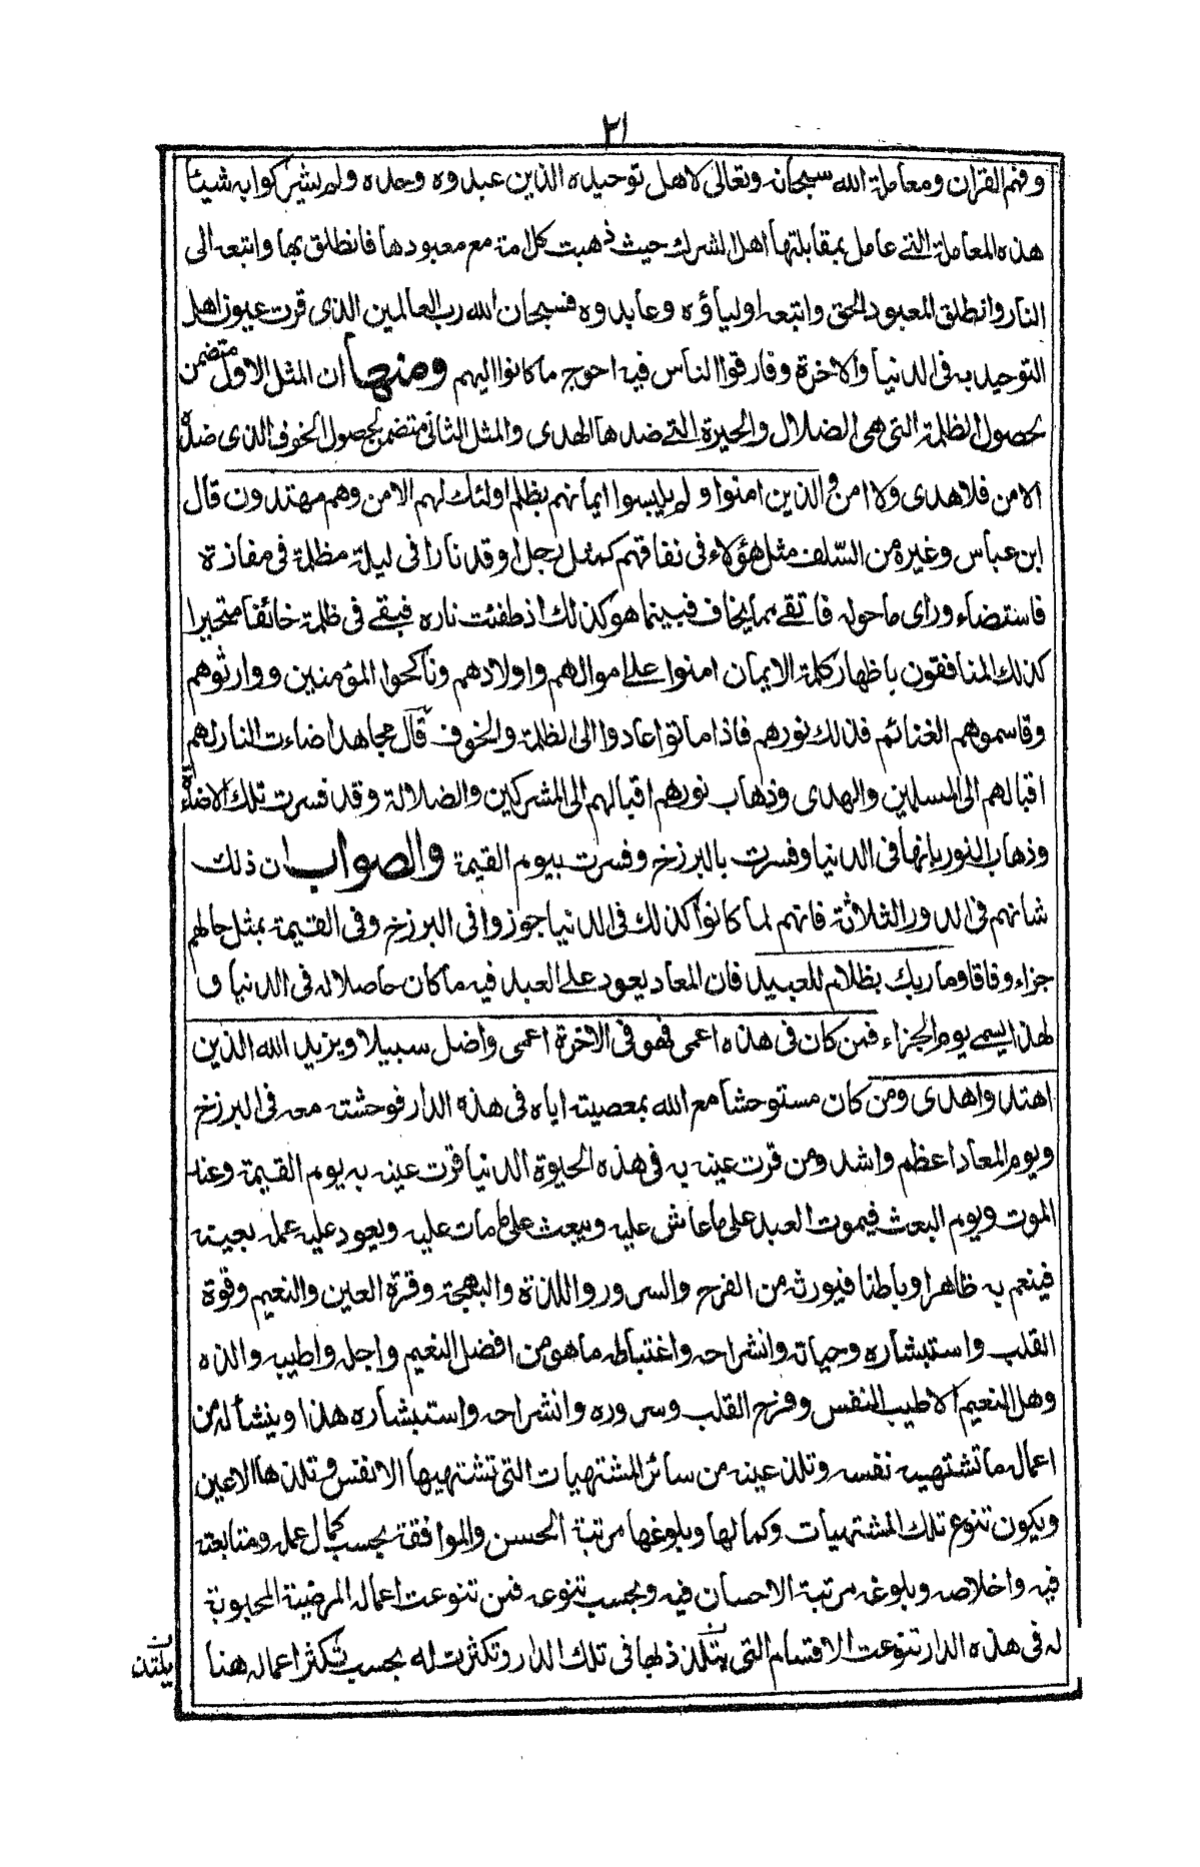 ٢١
وفهم القران ومعاملة الله سبحانه وتعالى لاهل توحيده الذين عبدوه وحده ولم يشركوا به شيئا
هذه المعاملة التي عامل بمقابلتها اهل الشرك حيث ذهبت كل امة مع معبودها فانطلق بها واتبعه الى
النار وانطلق المعبود الحق واتبعه اولياؤه وعابدوه فسبحان الله رب العالمين الذى قرت عيون اهل
التوحيد به فى الدنيا والاخرة وفارقوا الناس فيه احوج ما كانوا اليهم ومنها ان المثل الاول متضمن
لحصول الظلمة التى هى الضلال والحيرة التي ضدها الهدى والمثل الثانى متضمن لحصول الخوف الذى ضده
الامن فلا هدى ولا امن والذين امنوا ولم يلبسوا ايمانهم بظلم اولئك لهم الامن وهم مهتدون قال
ابن عباس وغيره من السّلف مثل هؤلاء فى نفاقهم كمثل رجل اوقد نارا فى ليلة مظلمة فى مفازة
فاستضاء وراى ما حوله فاتقى مما يخاف فبينما هو كذلك اذ طفئت ناره فبقى فى ظلمة خائفا متحيرا
كذلك المنافقون باظهار كلمة الايمان امنوا على اموالهم واولادهم وناكحوا المؤمنين ووارثوهم
وقاسموهم الغنائم فذلك نورهم فاذا ماتوا عادوا الى الظلمة والخوف قال مجاهد اضاءت النار لهم
اقبالهم الى المسلمين والهدى وذهاب نورهم اقبالهم الى المشركين والضلالة وقد فسرت تلك الاضاءة
وذهاب النور بانها فى الدنيا وفسرت بالبرزخ وفسرت بيوم القيمة والصواب ان ذلك
شانهم فى الدور الثلاثة فانهم لما كانوا كذلك فى الدنيا جوزوا فى البرزخ وفى القيمة بمثل حالهم
جزاء وفاقا وما ربك بظلام للعبيد فان المعاد يعود على العبد فيه ما كان حاصلا له فى الدنيا و
لهذا يسمى يوم الجزاء فمن كان فى هذه اعمى فهو فى الاخرة اعمى واضل سبيلا ويزيد الله الذين
اهتدوا هدى ومن كان مستوحشا مع الله بمعصيته اياه فى هذه الدار فوحشته معه فى البرزخ
ويوم المعاد اعظم واشد ومن قرت عينه به فى هذه الحيوة الدنيا قرت عينه به يوم القيمة وعند
الموت ويوم البعث فيموت العبد على ما عاش عليه ويبعث على ما مات عليه ويعود عليه عمله بعينه
فينعم به ظاهرا وباطنا فيورثه من الفرح والسرور واللذة والبهجة وقرة العين والنعيم وقوة
القلب واستبشاره وحياته وانشراحه واغتباطه ما هو من افضل النعيم واجله واطيبه والذه
وهل النعيم الا طيب النفس وفرح القلب وسروره وانشراحه واستبشاره هذا وينشأ له من
اعماله ما تشتهيه نفسه وتلذ عينه من سائر المشتهيات التى تشتهيها الانفس وتلذها الاعين
ويكون تنوع تلك المشتهيات وكمالها وبلوغها مرتبة الحسن والموافقة بحسب كمال عمله ومتابعته
فيه واخلاصه وبلوغه مرتبة الاحسان فيه وبحسب تنوعه فمن تنوعت اعماله المرضية المحبوبة
له فى هذه الدار تنوعت الاقسام التى يتلذذ بها فى تلك الدار وتكثرت له بحسب تكثر اعماله هنا